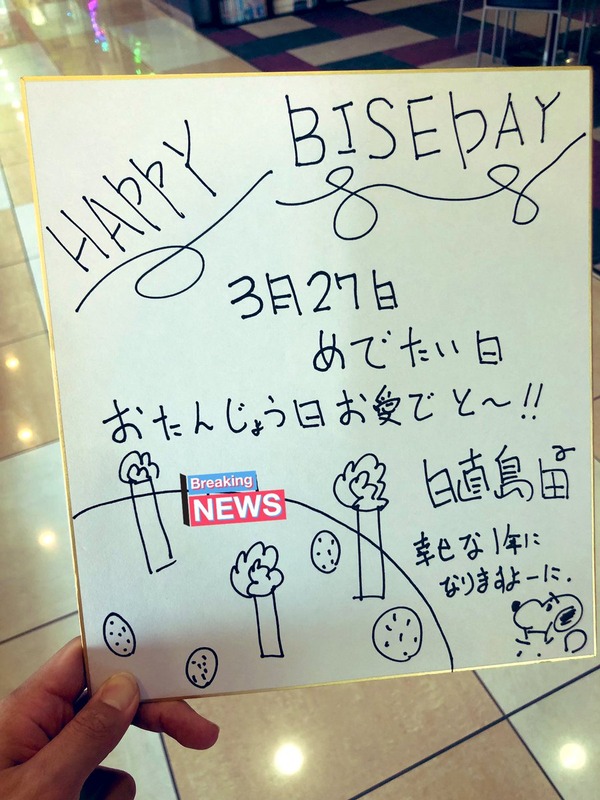 HAPPY BISEDAY
3月27日
めでたい日
おたんじょう日お愛でと〜!!
Breaking
NEWS
幸せな1年に
なりますよーに.